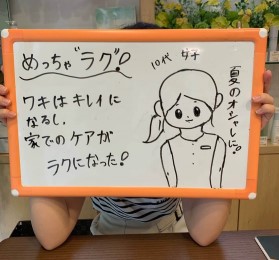 めっちゃ"ラグ"!
ワキはキレイに
なるし、
家でのケアが
ラクになった!
10代 女子
夏のオシャレに!